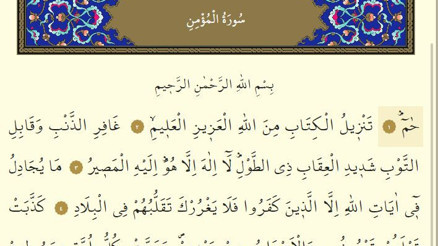 سُورَةُ الْمُؤْمِنِ
بِسْمِ اللهِ الرَّحْمٰنِ الرَّحِيمِ
حٰمٓ ۚ ﴿١﴾ تَنْزِيلُ الْكِتَابِ مِنَ اللهِ الْعَزِيزِ الْعَلِيمِۙ ﴿٢﴾ غَافِرِ الذَّنْبِ وَقَابِلِ
التَّوْبِ شَدِيدِ الْعِقَابِ ذِى الطَّوْلِۜ لَٓا اِلٰهَ اِلَّا هُوَۜ اِلَيْهِ الْمَصِيرُ ﴿٣﴾ مَا يُجَادِلُ
فِٓى اٰيَاتِ اللهِ اِلَّا الَّذِينَ كَفَرُوا فَلَا يَغْرُرْكَ تَقَلُّبُهُمْ فِى الْبِلَادِ ﴿٤﴾ كَذَّبَتْ